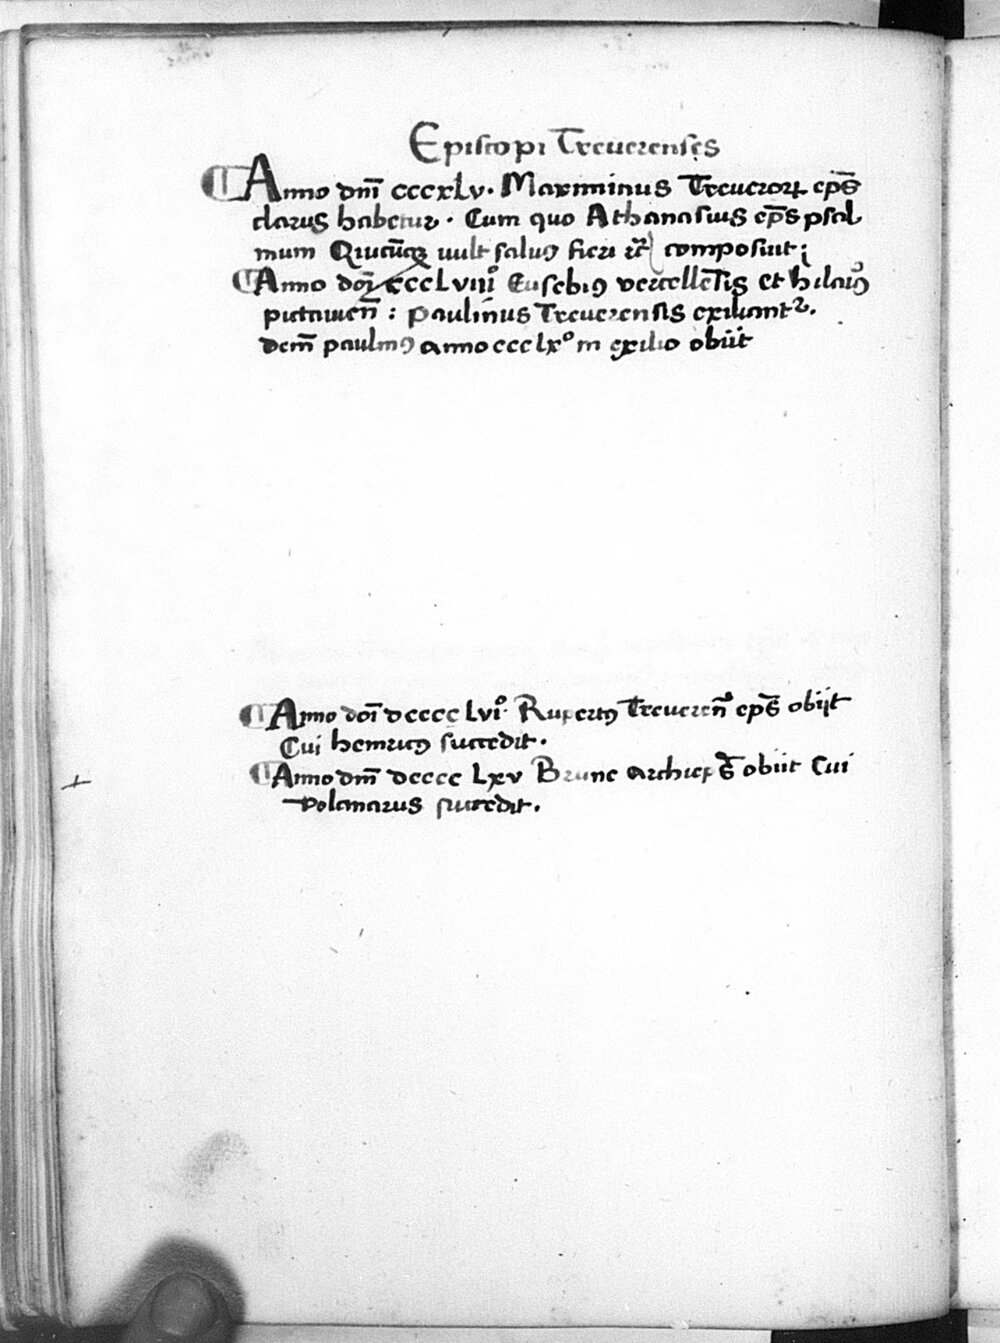 Episcopi Treuerenses
Anno dnī cccxlv. Maximinus Treuerorꝝ ep̄s
clarus habetur. Cum quo Athanasius ep̄s psal
mum Quicūqꝫ uult saluꝯ fieri ⁊c̄ composuit;
Anno doī ccclviiiº Eusebiꝯ vercellēsis et hilariꝯ
pictauieñ : paulinus Treuerensis exiliantᷣ.
Idem̄ paulinꝯ anno ccclxº in exilio obiit
Anno doī dcccc lviº Rupertꝯ Treuereñ ep̄s obijt
Cui henricꝯ succedit.
Anno dnī dcccc lxv Bruno archiep̄s obiit Cui
volcmarus succedit.